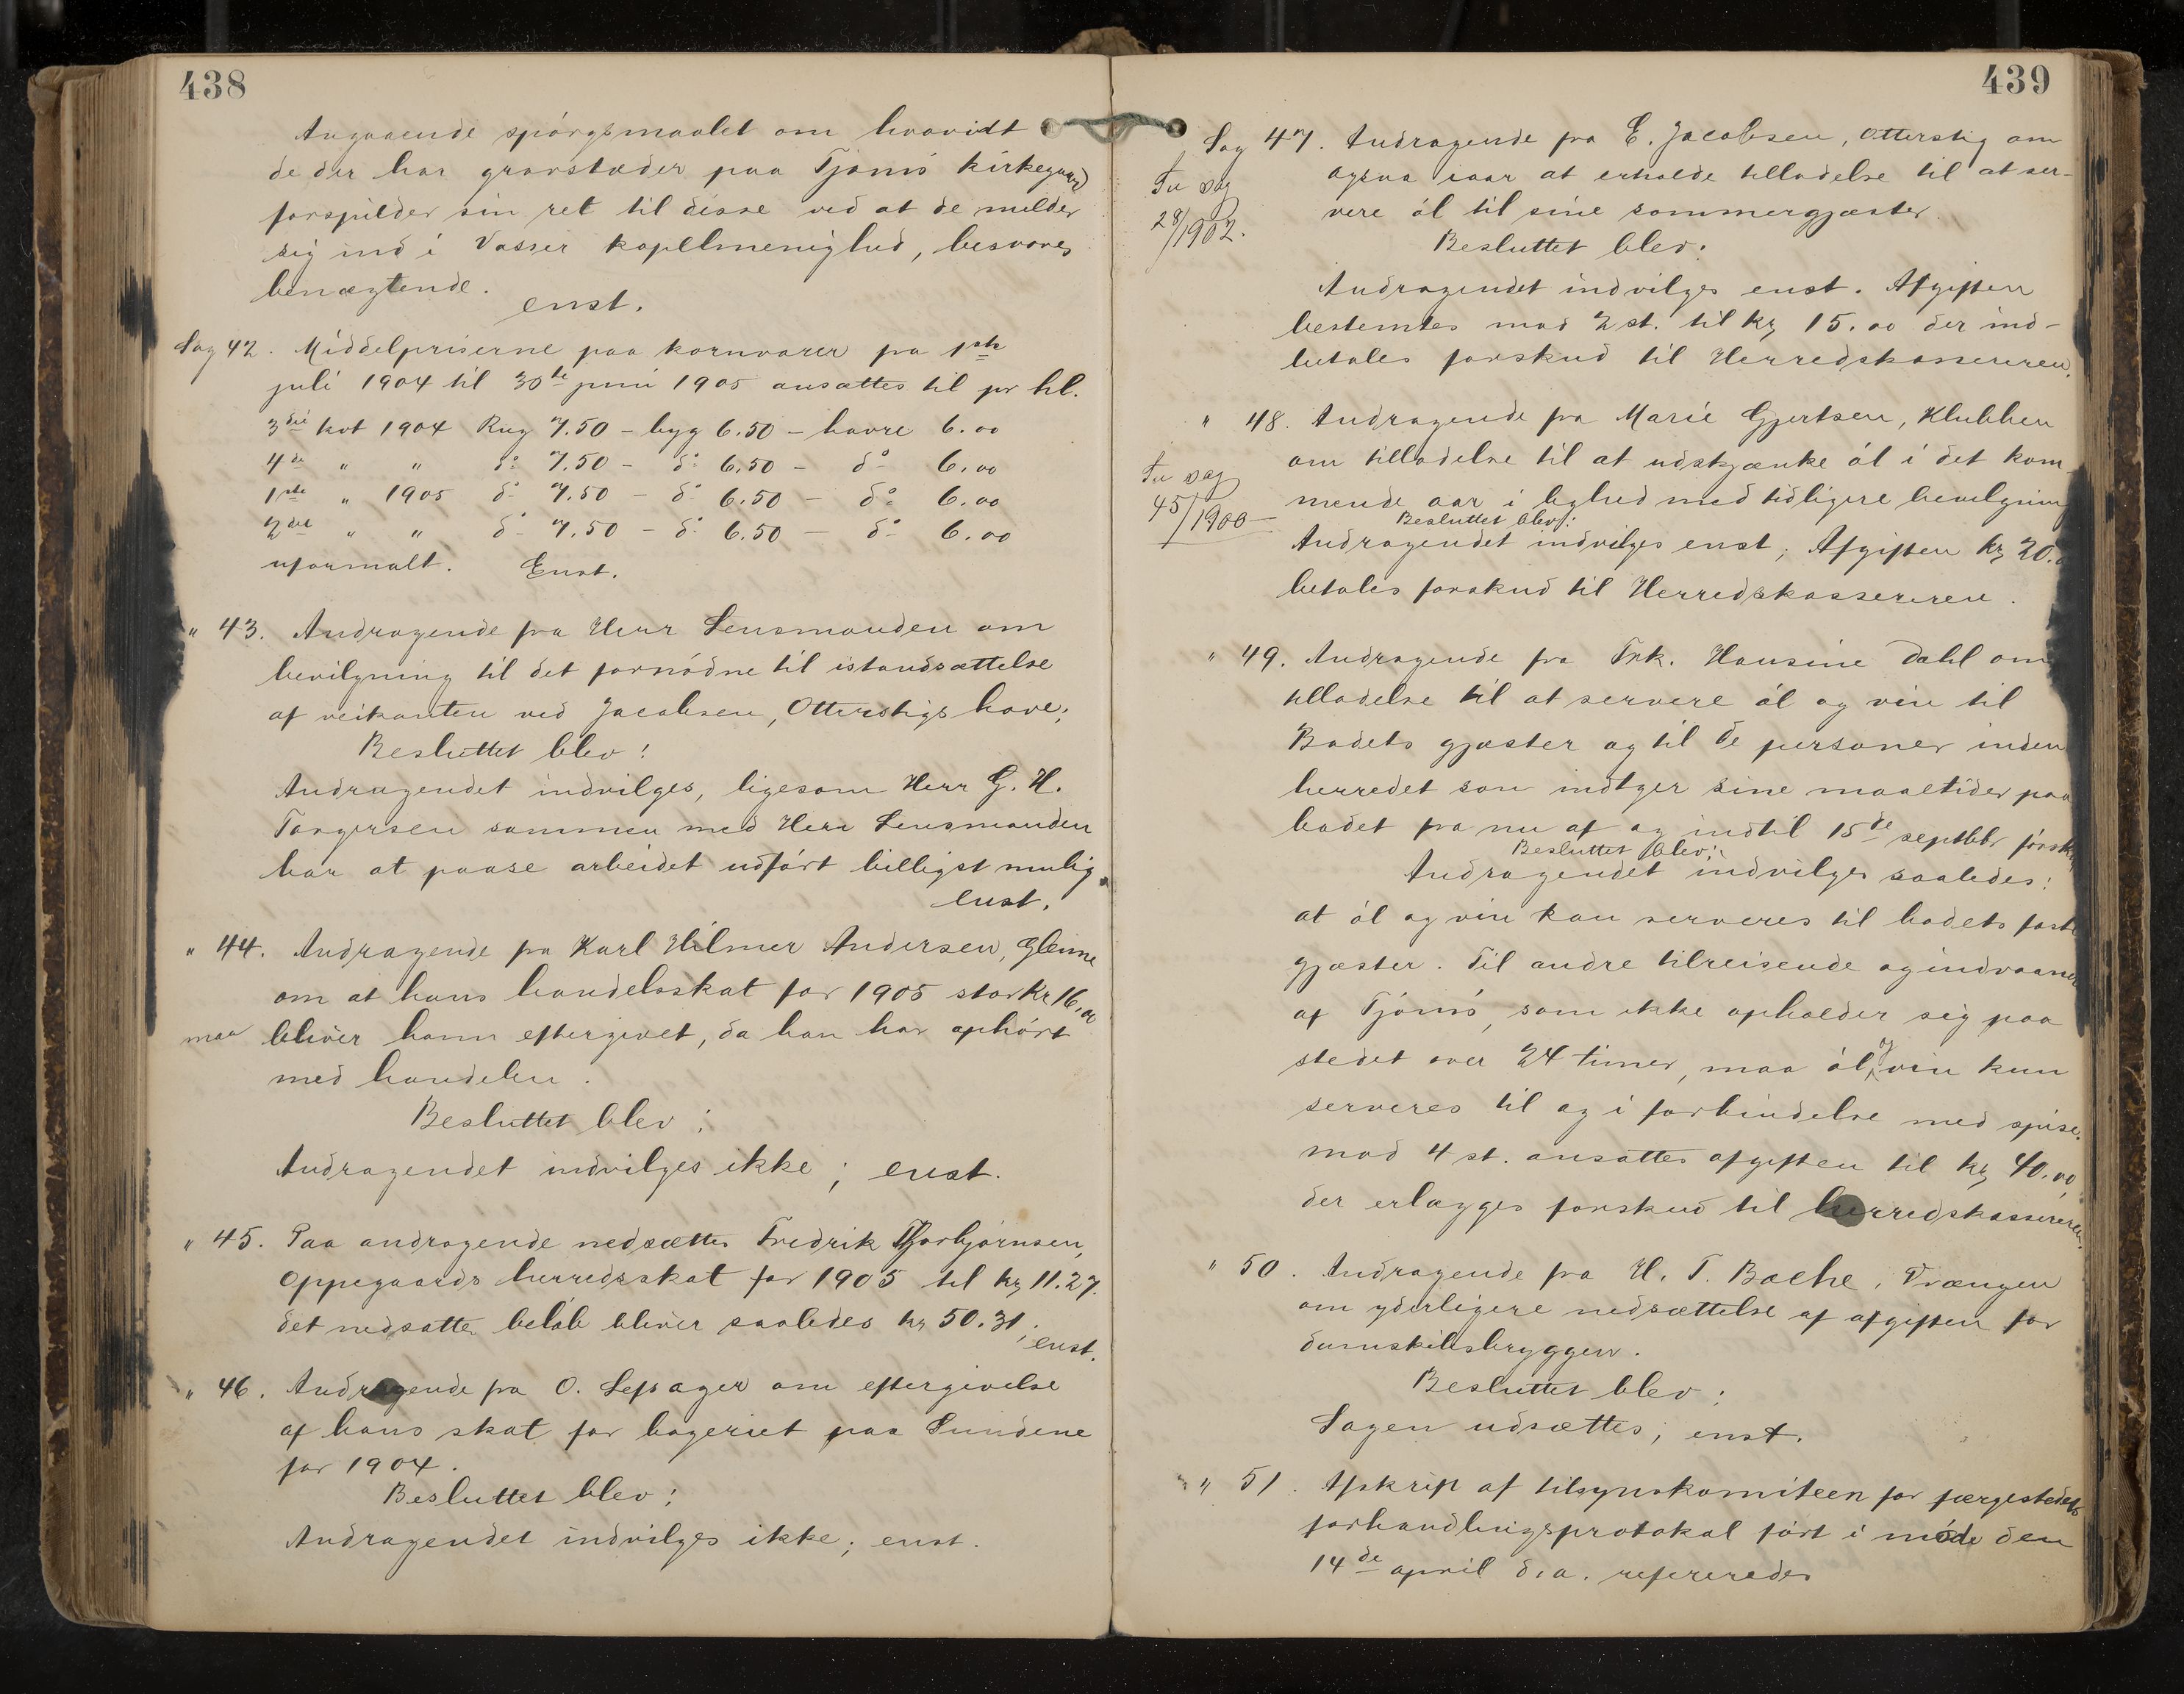 438
Angaaende spórgsmaalet om hvorvidt
de der har gravstæder paa Tjómó kirkegaard
forspilder sin ret til disse ved at de melder
sig ind i Vasser kapellmenighed, besvares
benægtende.
enst.
Sag 42. Middelpriserne paa kornvarer fra 1ste
juli 1904 til 30te juni 1905 ansattes til pr hl.
3die kvt 1904 Rug 7.50 - byg 6.50 - havre 6.00
4de " " do 7.50 - do 6.50 - do 6.00
1ste " 1905 do 7.50 - do 6.50 - do 6.00
2det " " do 7.50 - do 6.50 - do 6.00
uformalt. Enst.
" 43. Andragende fra Herr Lensmanden om
bevilgning til det fornódne til istandsættelse
af veikanten ved Jacobsen, Otterstigs have;
Besluttet blev:
Andragendet indvilges, ligesom Herr G. H.
Torgersen sammen med Herr Lensmanden
har at paase arbeidet udfórt billigst mulig.
enst.
" 44. Andragende fra Karl Hilmer Andersen, Glenne
om at hans handelsskat for 1905 stor Kr 16,00
maa bliver ham eftergivet, da han har ophórt
med handelen.
Besluttet blev:
Andragendet indvilges ikke; enst.
" 45. Paa andragende nedsættes Fredrik Thorbjórnsen,
Oppegaards herredsskat for 1905 til kr 11.27.
det nedsatte belób bliver saaledes kr 50.31.
enst.
" 46. Andragende fra O. Lefsager om eftergivelse
af hans skat for bageriet paa Sundene
for 1904.
Besluttet blev:
Andragendet indvilges ikke; enst.
439
Sag 47. Andragende fra E. Jacobsen, Otterstig om
ogsaa iaar at erholde tilladelse til at ser-
vere ól til sine sommergjæster.
Se sag
28/1902.
Besluttet blev:
Andragendet indvilges enst. Afgiften
bestemtes mod 2 st. til kr 15.00 der ind-
betales forskud til Herredskassereren.
" 48. Andragende fra Marie Gjertsen, Klubben
om tilladelse til at udskjænke ól i det kom
mende aar i lighed med tidligere bevilgning
Se sag
45/1900
Besluttet blev:
Andragendet indvilges enst; Afgiften kr 20.
betales forskud til Herredskassereren.
" 49. Andragende fra Frk. Hansine Dahl om
tilladelse til at servere ól og vin til
Badets gjæster og til de personer inden
herredet som indtager sine maaltider paa
badet fra nu af og indtil 15de septbr fórstk.
Besluttet blev:
Andragendet indvilges saaledes:
at ól og vin kan serveres til badets faste
gjæster. Til andre tilreisende og indvaanere
af Tjómó, som ikke opholder sig paa
stedet over 24 timer, maa ól og vin kun
serveres til og i forbindelse med spise.
mod 4 st. ansattes afgiften til kr 40.00,
der erlægges forskud til herredskassereren.
" 50. Andragende fra H. T. Bache, Vrængen
om yderligere nedsættelse af afgiften for
damskibsbryggen.
Besluttet blev:
Sagen udsættes; enst.
" 51. Afskrift af tilsynskomiteen for færgestedets
forhandlingsprotokol fórt i móde den
14de april d.a. refereredes